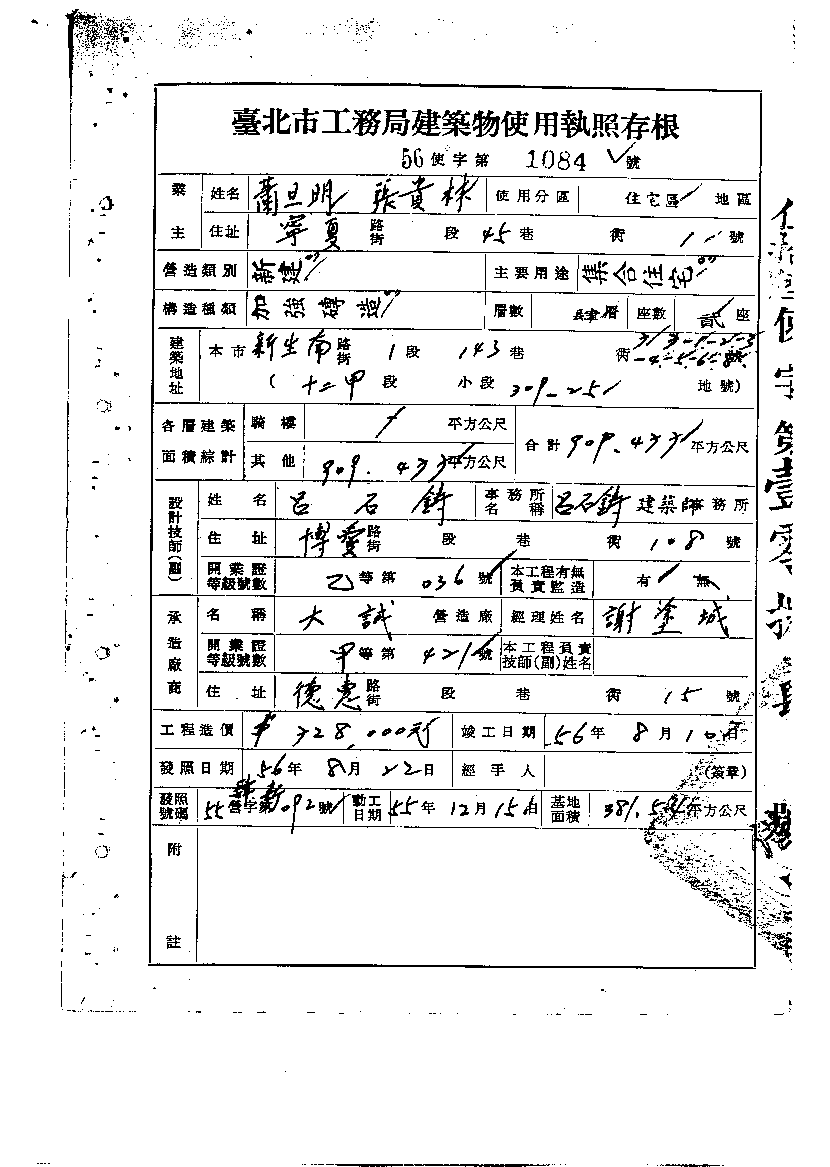 臺北市工務局建築物使用執照存根
56使字第 1084 號
業主 姓名 蕭旦明 張貴林 使用分區 住宅區 地區
住址 寧夏 路街 段 45巷 衖 1 號
營造類別 新建 主要用途 集合住宅
構造種類 加強磚造 層數 肆層 座數 貳座
建築地址 本市 新生南 路街 1段 143巷 衖 號
(十二甲段 小段 309-251 地號)
各層建築面積綜計 騎樓 平方公尺 合計 909.433 平方公尺
其他 909.433 平方公尺
設計技師(副) 姓名 呂石 事務所名稱 呂石 建築師事務所
住址 博愛 路街 段 巷 衖 108 號
開業證等級號數 乙等第 036 號 本工程有無負責監造 有 無
承造廠商 名稱 大誠 營造廠 經理姓名 謝塗城
開業證等級號數 甲等第 421 號 本工程負責技師(副)姓名
住址 德惠 路街 段 巷 衖 15 號
工程造價 $ 328,000元 竣工日期 56年 8月 10日
發照日期 56年 8月 22日 經手人 (簽章)
發照號碼 55 營字第 092 號 動工日期 55年 12月 15日 基地面積 381. 平方公尺
附註
使字第壹零